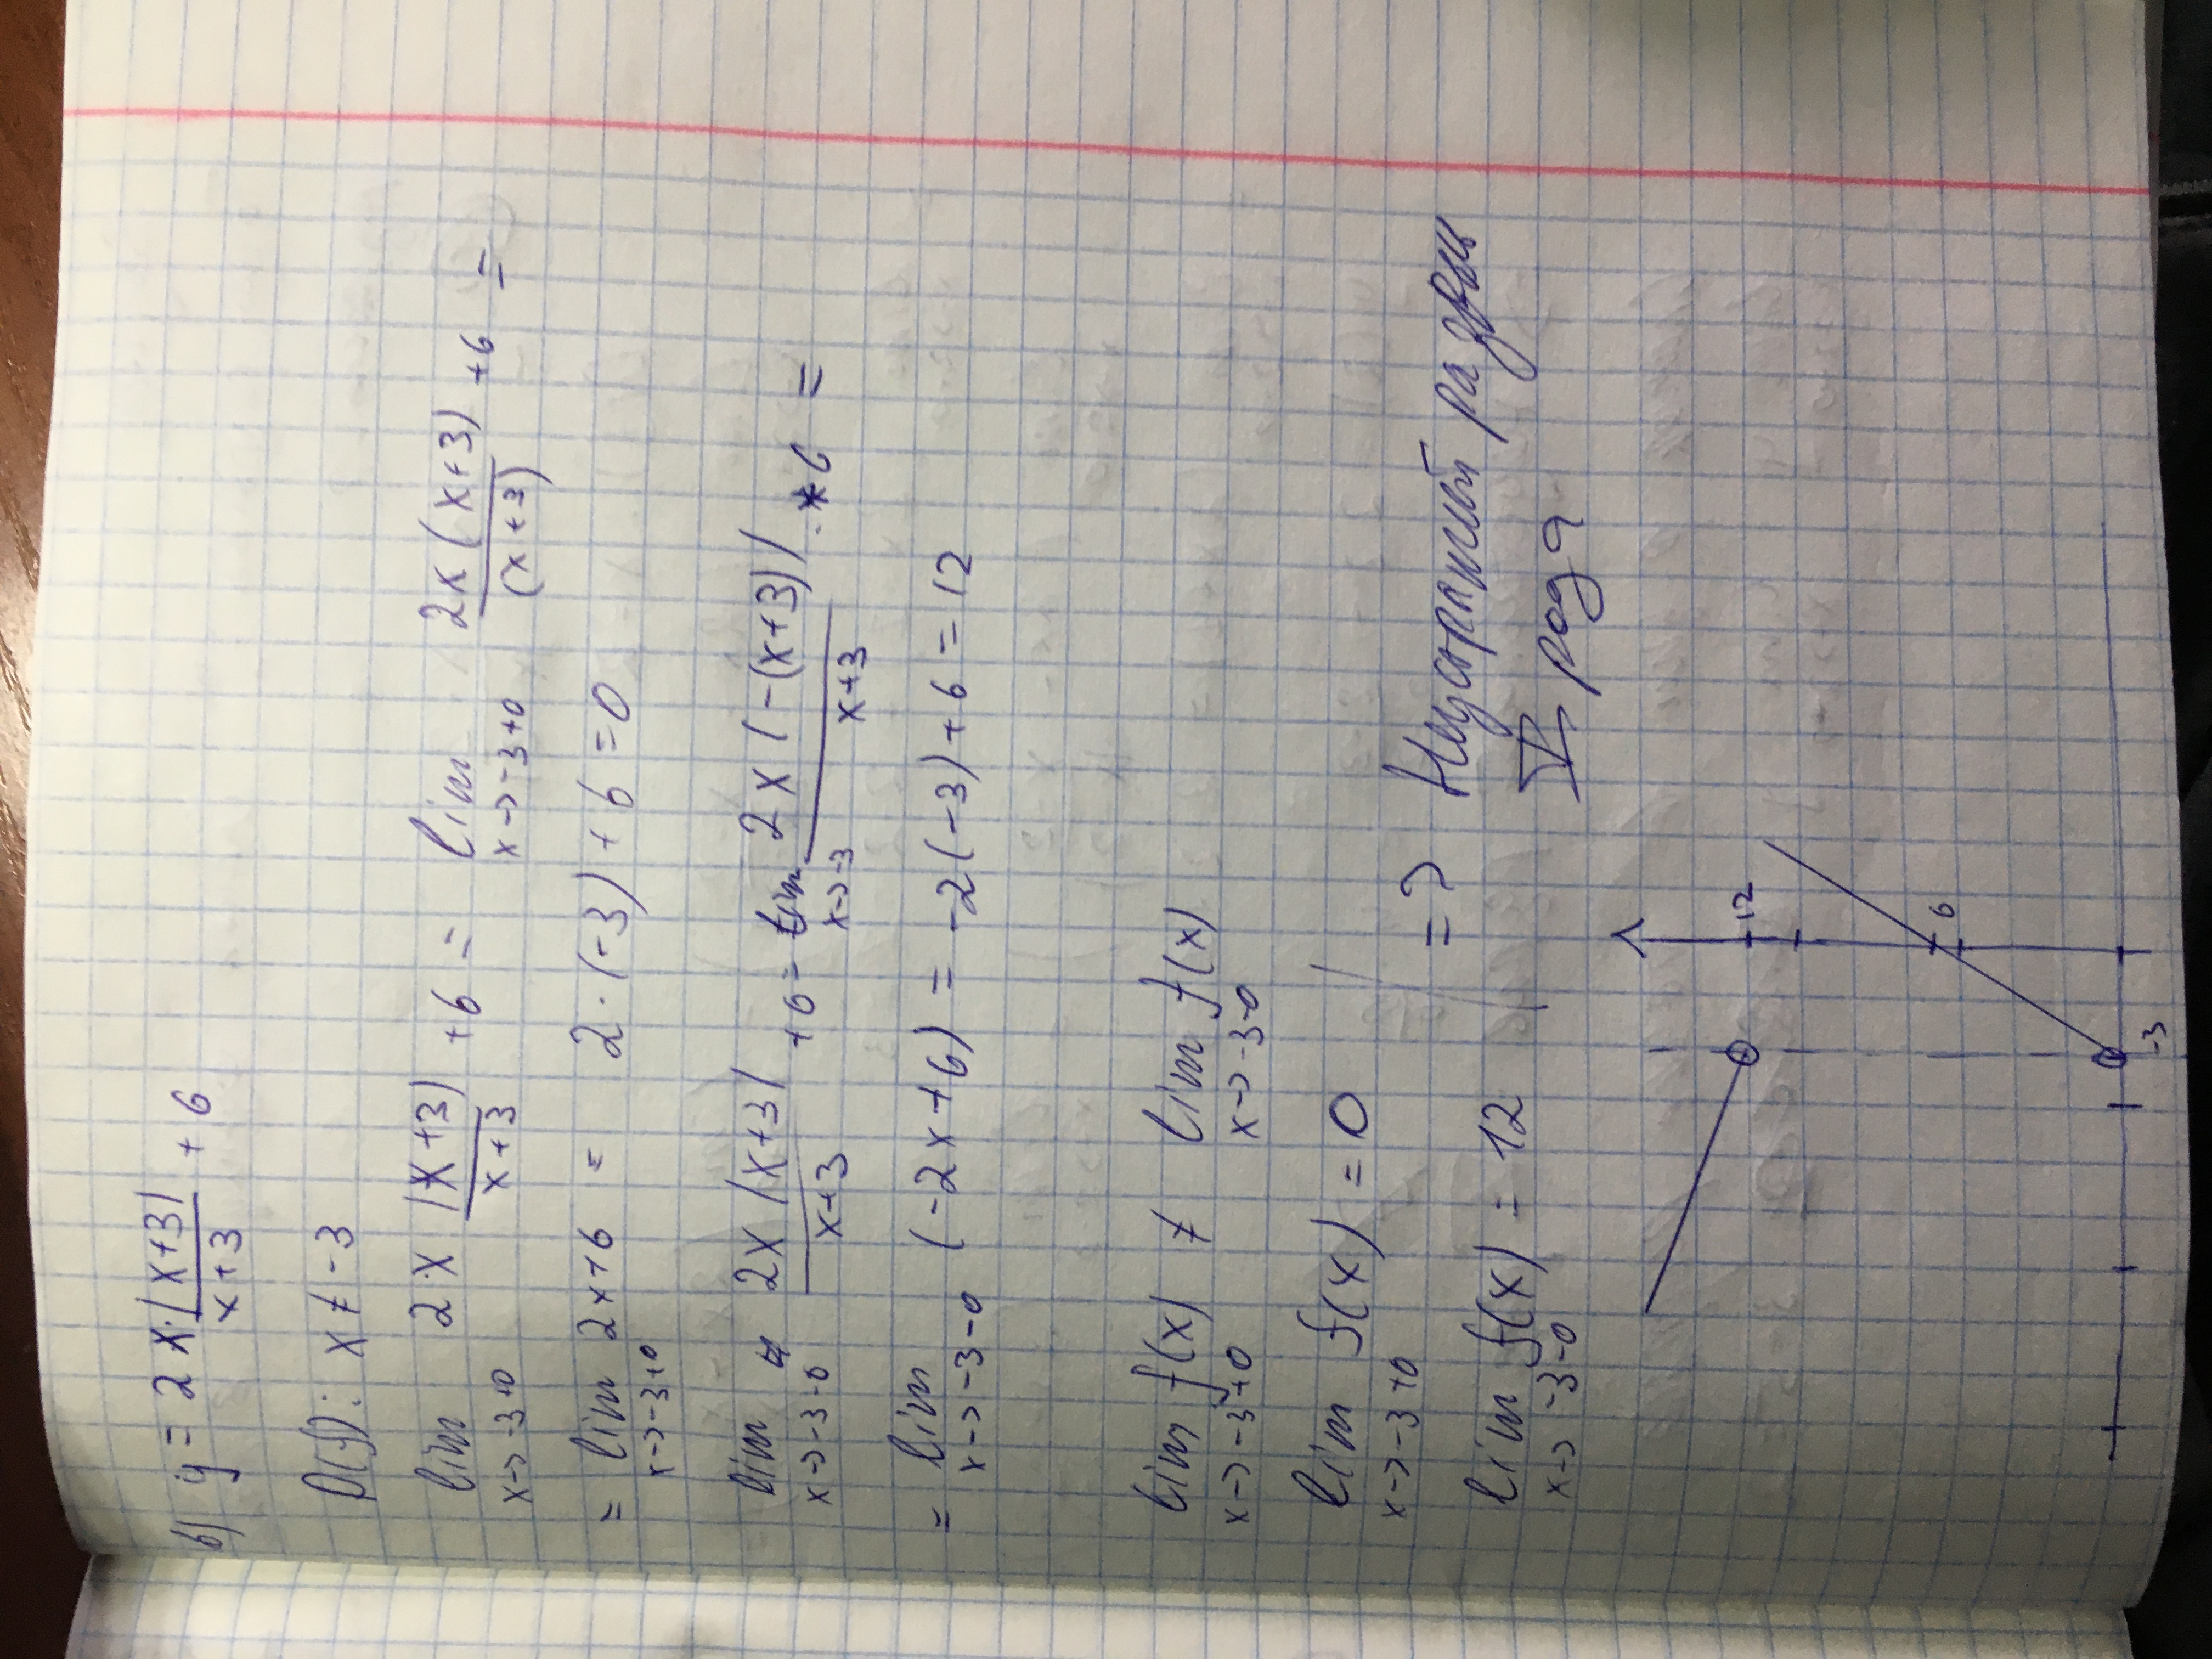 б) y = 2x·|x+3| / x+3 + 6
D(f): x ≠ -3
lim x→-3+0 2·x |x+3| / x+3 + 6 = lim x→-3+0 2x(x+3) / (x+3) + 6 =
= lim x→-3+0 2x+6 = 2·(-3) + 6 = 0
lim x→-3-0 2x|x+3| / x+3 + 6 = lim x→-3 2x(-(x+3)) / x+3 + 6 =
= lim x→-3-0 (-2x+6) = -2(-3)+6 = 12
lim x→-3+0 f(x) ≠ lim x→-3-0 f(x)
lim x→-3+0 f(x) = 0
=>
lim x→-3-0 f(x) = 12
рода
12
6
-3